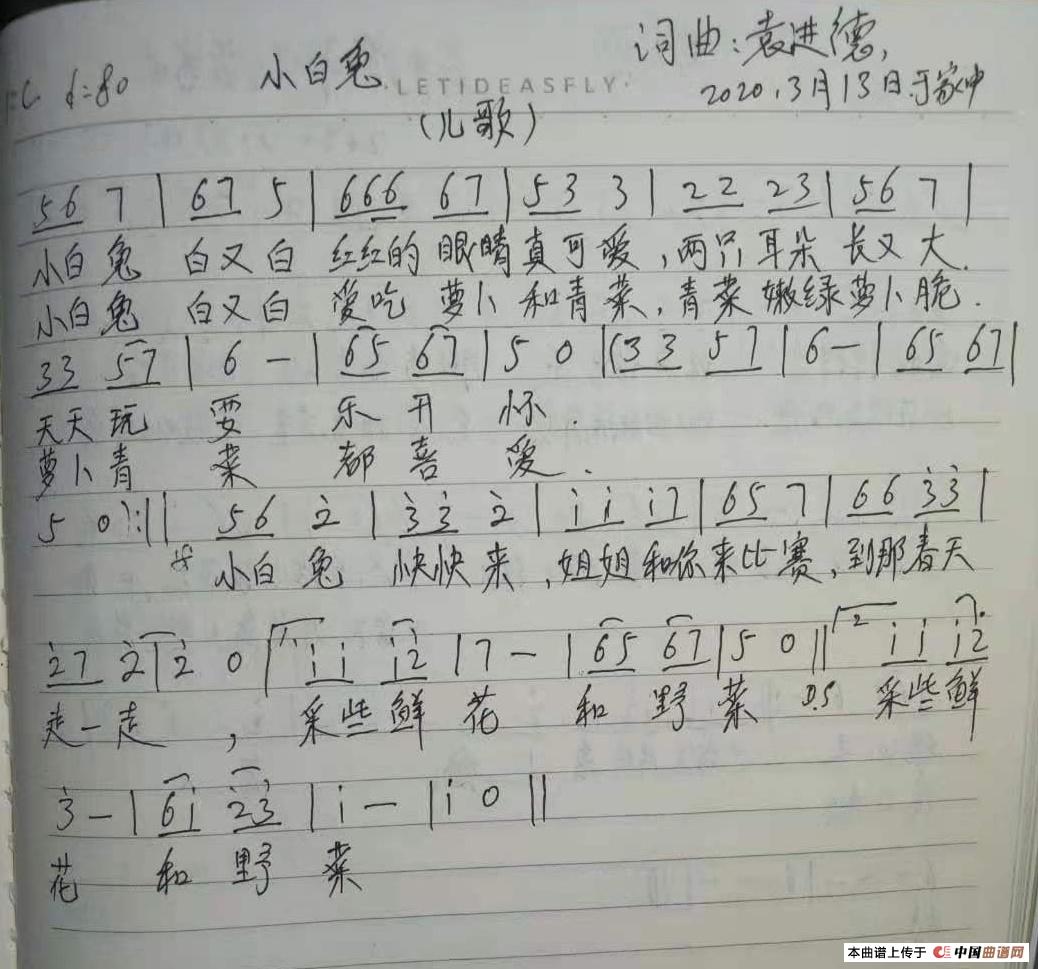 小白兔
词曲:袁进德,
=C ♩=80
LETIDEASFLY
2020.3月13日于家中
(儿歌)
56 7 | 67 5 | 666 67 | 53 3 | 22 23 | 56 7 |
小白兔 白又白 红红的眼睛真可爱,两只耳朵 长又大.
小白兔 白又白 爱吃 萝卜 和青菜,青菜嫩绿萝卜脆.
33 57 | 6 - | 65 67 | 5 0 |(33 57 | 6 - | 65 67 |
天天玩 耍 乐开 怀.
萝卜青 菜 都喜 爱.
5 0):|| 56 2̇ | 3̇3̇ 2̇ | i i i7 | 65 7 | 66 3̇3̇ |
小白兔 快快来,姐姐和你来比赛,到那春天
2̇7 2̇ | 2̇ 0 | 1. i i i2̇ | 7 - | 65 67 | 5 0 || 2 i i i2̇
走一走 , 采些鲜 花 和 野 菜 D.S 采些鲜
3̇ - | 6i 2̇3̇ | i - | i 0 ||
花 和 野 菜
本曲谱上传于 中国曲谱网